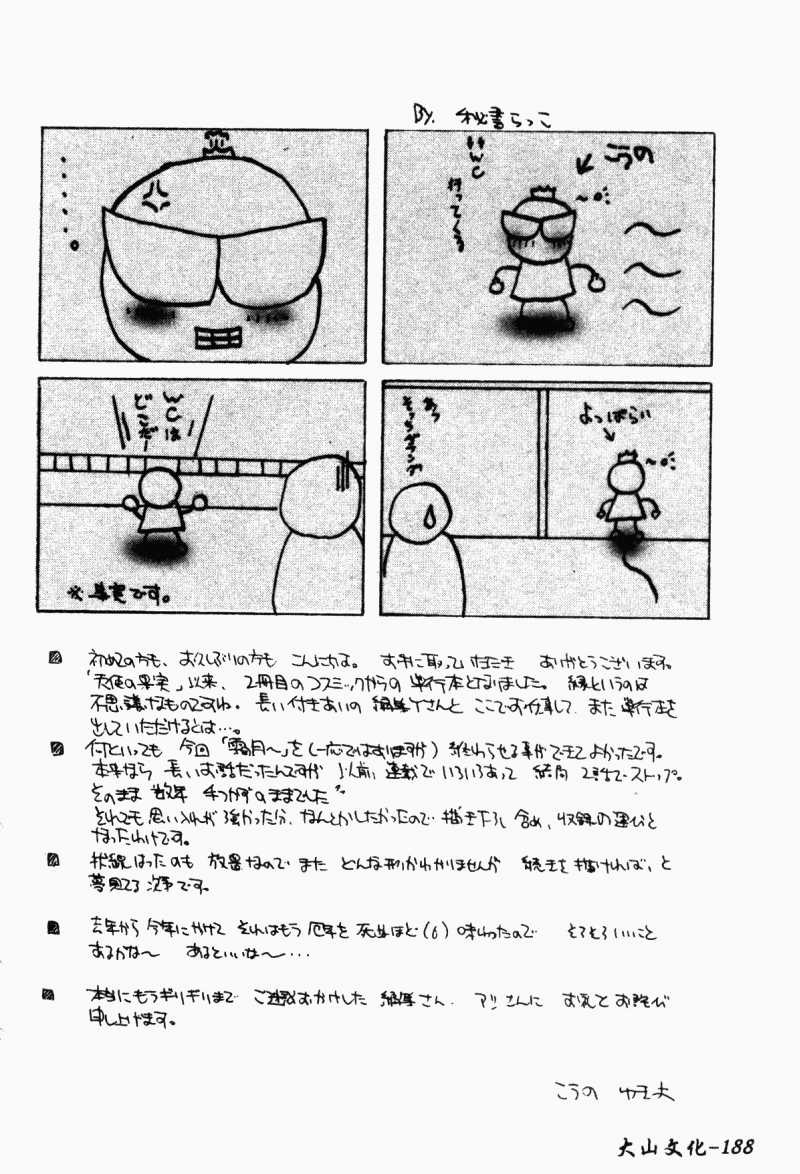 By. 秘書らっこ
こうの
WC
行ってくる
よっぱらい
あっ
そっちグランプ
WCは
どこだー
※事実です。
初めての方も、お久しぶりの方も こんにちは。 お手に取っていただき ありがとうございます。
「天使の果実」以来、2冊目のコスミックからの 単行本となりました。 縁というのは
不思議なものですね。 長い付きあいの 編集Yさんと ここでお仕事して、また 単行本を
出していただけるとは…。
何といっても 今回「霜月〜」を(一応ではありますが) 終わらせる事ができてよかったです。
本来なら 長いお話だったんですが 以前、連載で いろいろあって 結局 2話でストップ。
そのまま 数年 手つかずのままでした
それでも思い入れが強かった分、なんとかしたかったので 描き下ろし含め、収録の運びと
なったわけです。
伏線はったのも 放置なので また どんな形かわかりませんが 続きを描ければ、と
夢見てる次第です。
去年から今年にかけて それはもう 厄年を 死ぬほど(6) 味わったので そろそろいいこと
あるかな〜 あるといいな〜…
本当にもうギリギリまで ご迷惑おかけした 編集さん、アシさんに お礼とお詫び
申し上げます。
こうの ゆきよ
大山文化-188